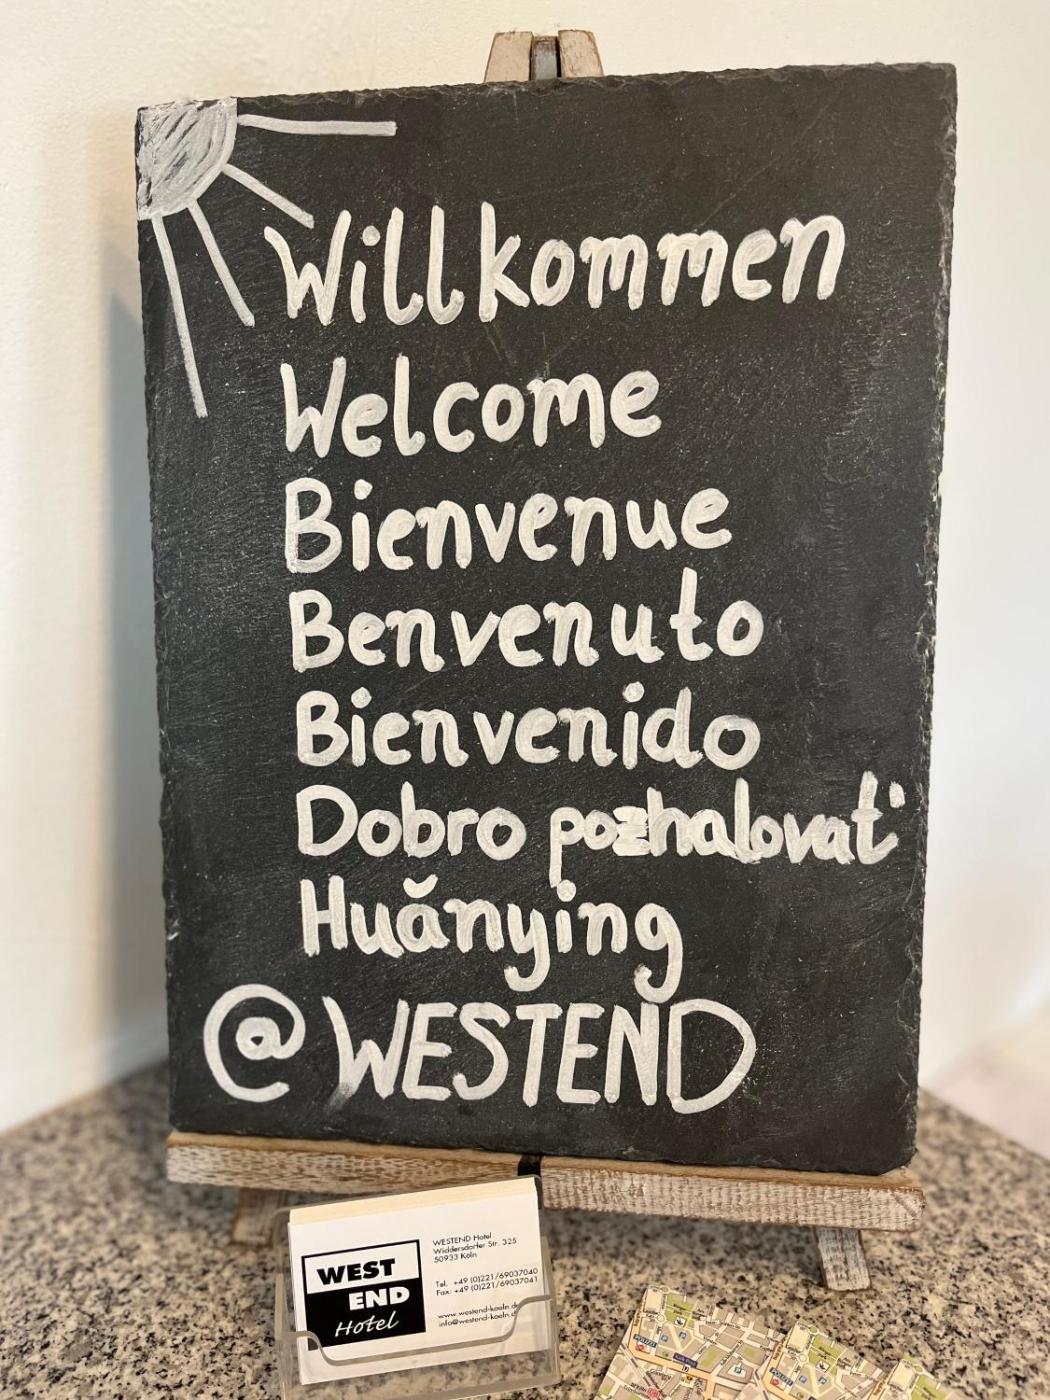 Willkommen
Welcome
Bienvenue
Benvenuto
Bienvenido
Dobro pozhalovat'
Huănying
@WESTEND
WEST
END
Hotel
WESTEND Hotel
Widdersdorfer Str. 325
50933 Köln
Tel. +49 (0)221/69037040
Fax: +49 (0)221/69037041
www.westend-koeln.de
info@westend-koeln.d